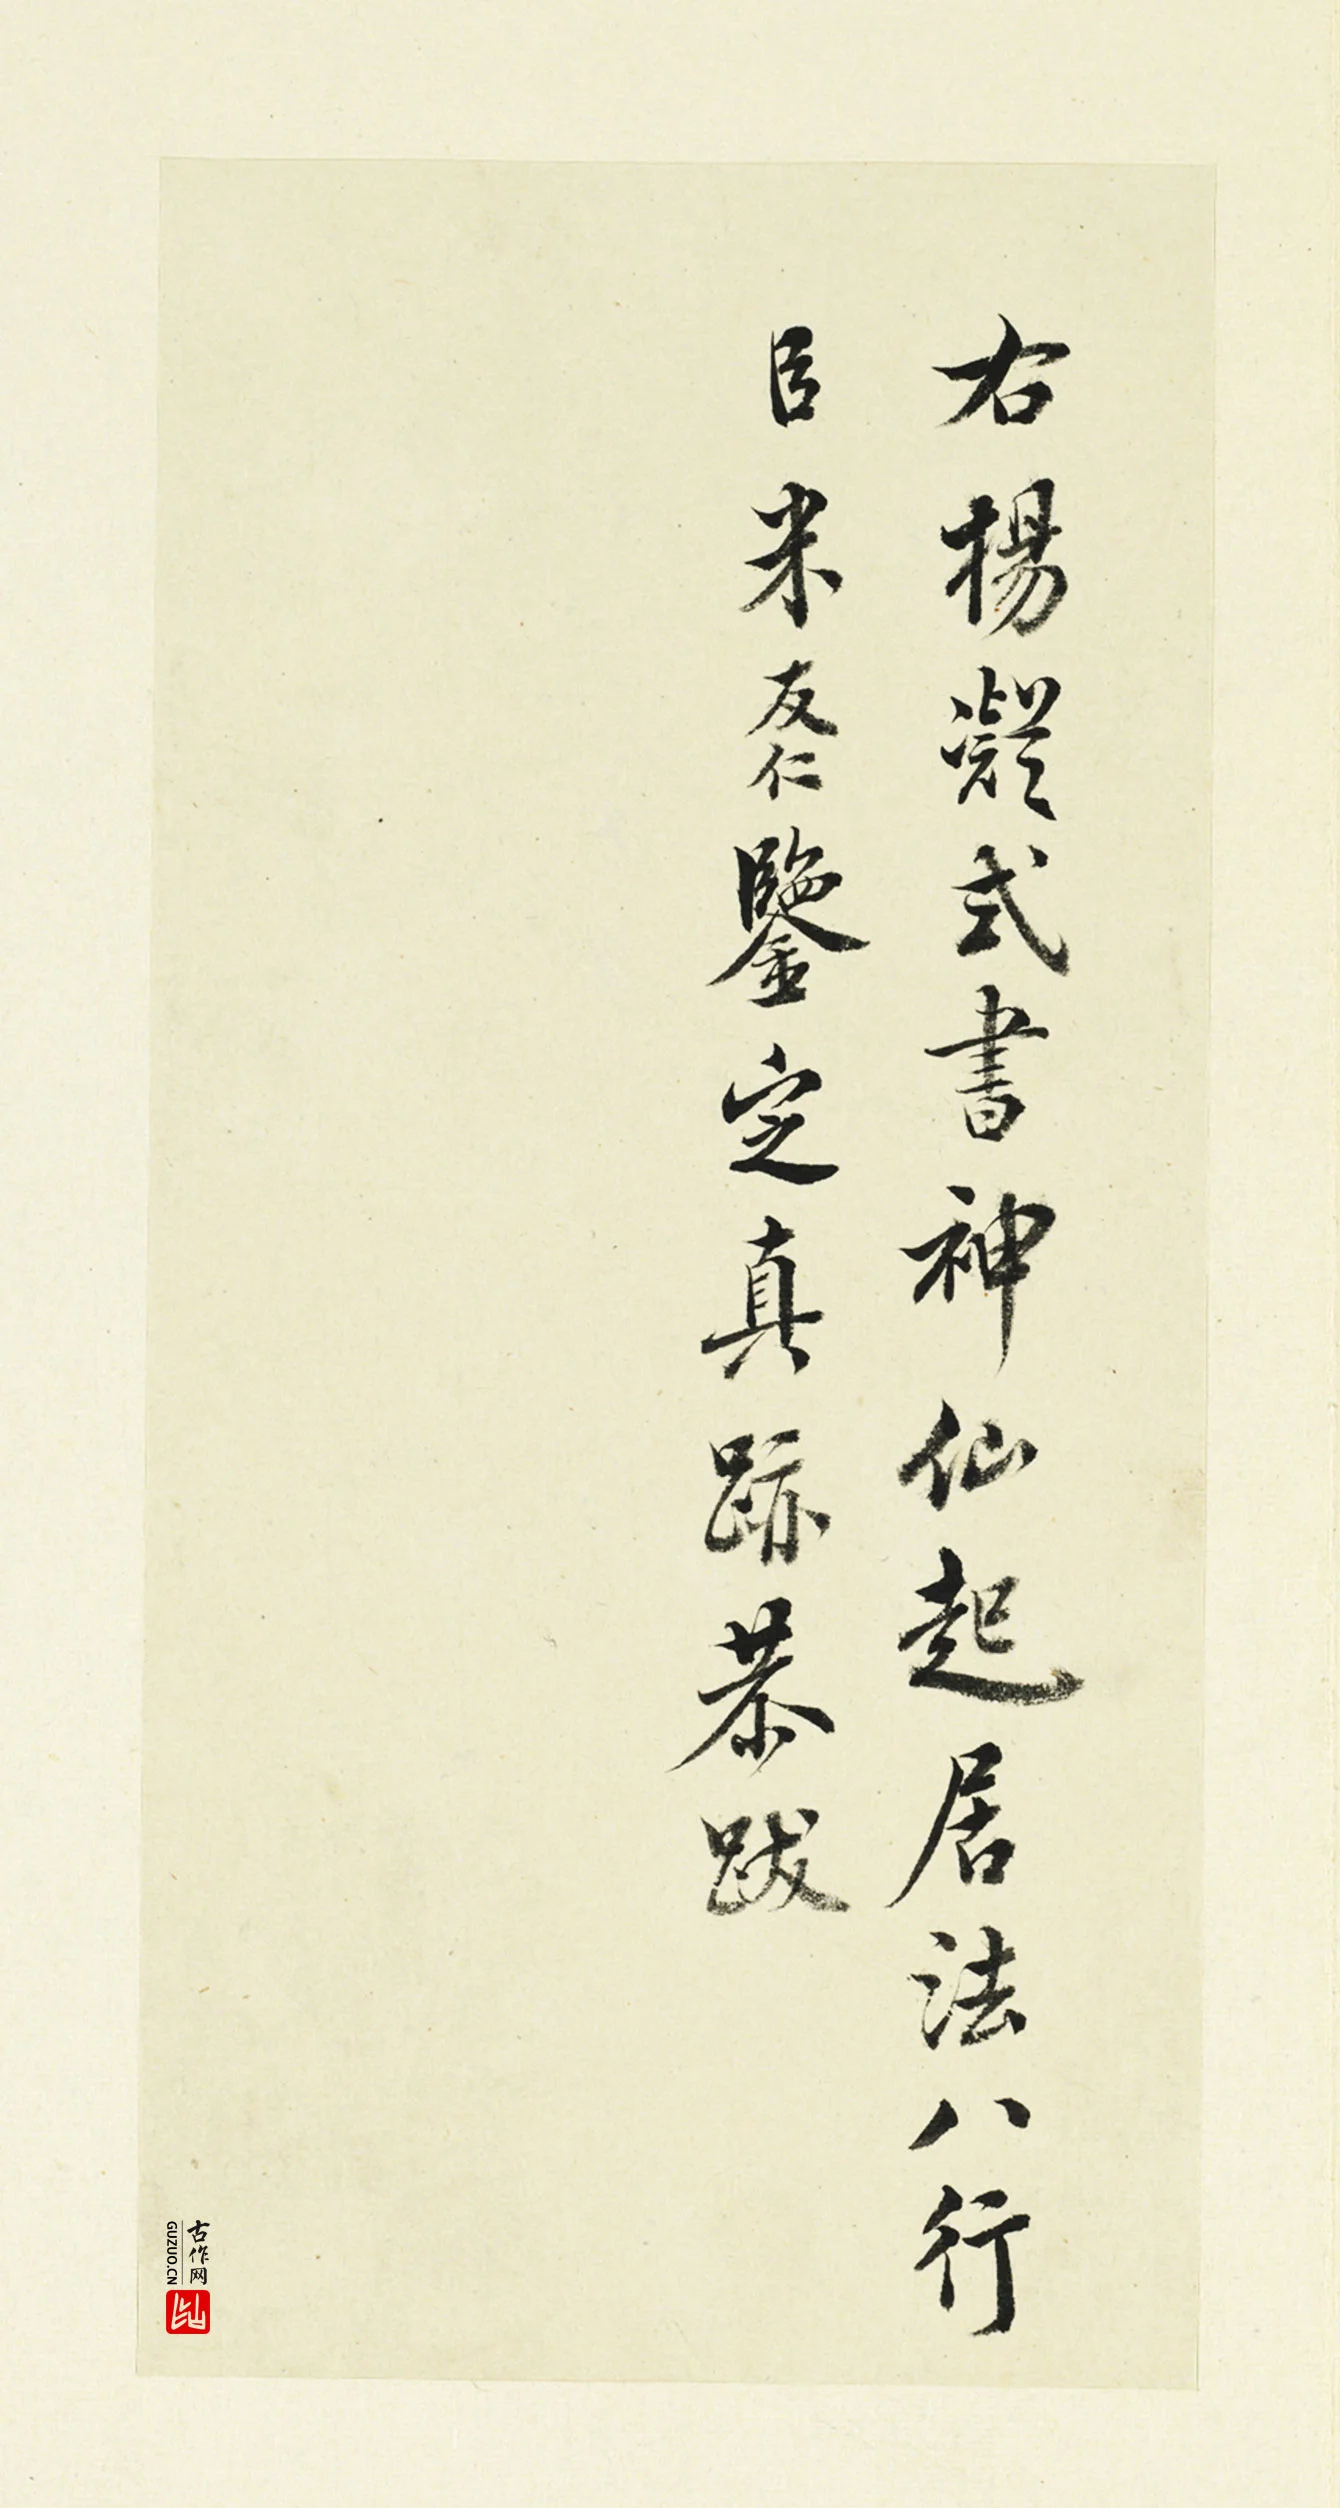 右楊凝式書神仙起居法八行
臣米友仁鑒定真跡恭跋
古作网
GUZUO.CN